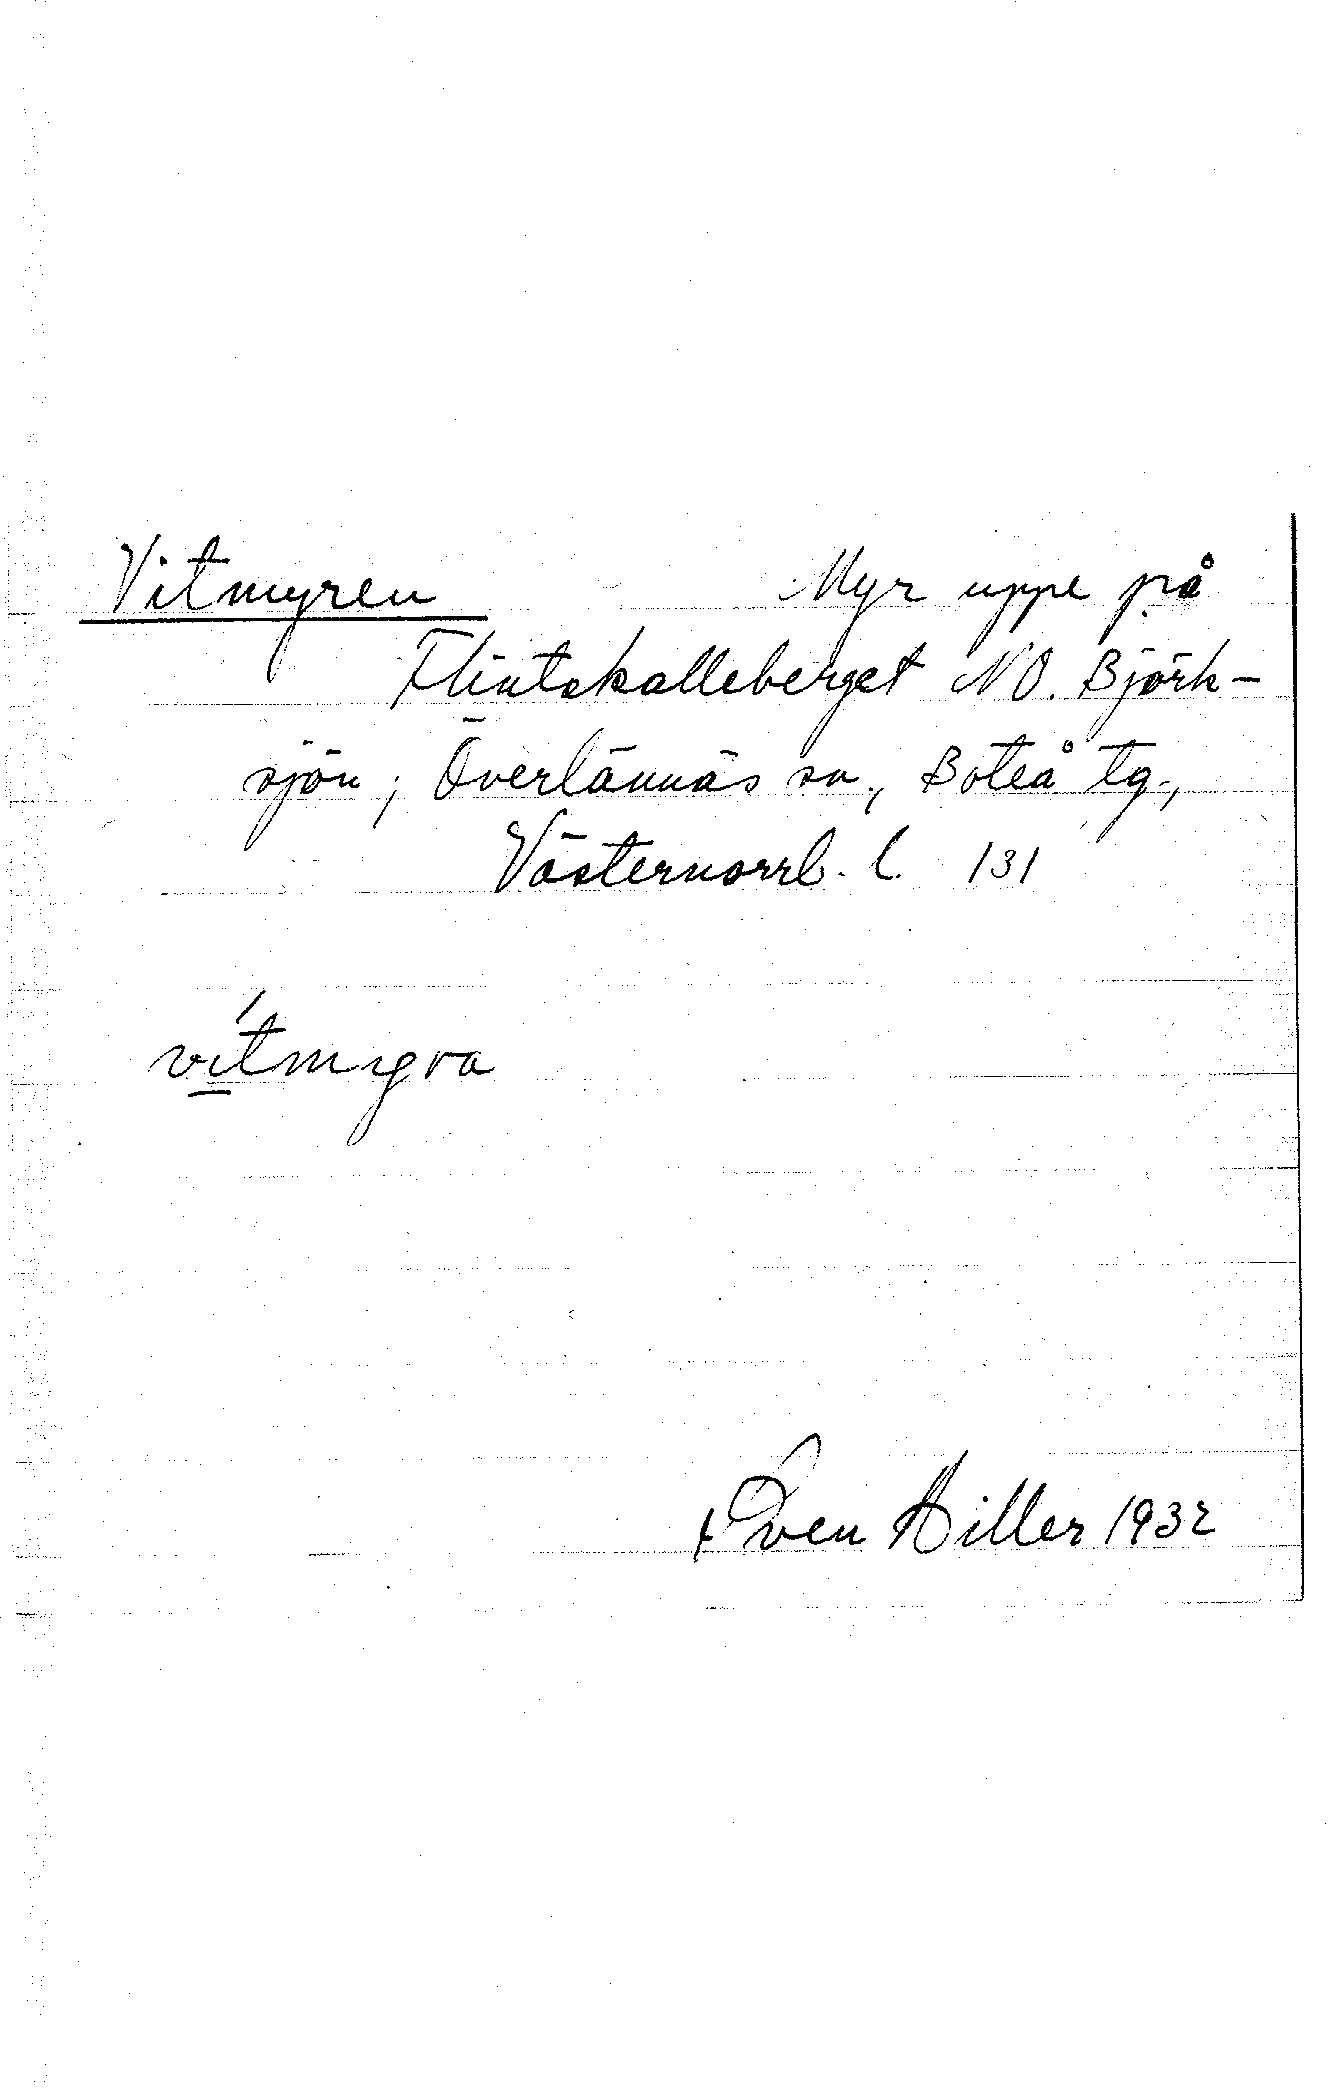 Vitmyren Myr uppe på
Flintskalleberget NO. Björk-
sjön; Överlännäs sn., Boteå tg.,
Västernorrl. l. 131
ví̲tmyra
Sven Hiller 1932